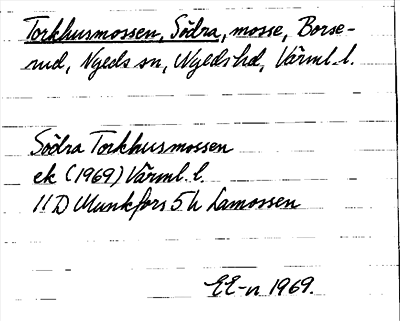 Torkhusmossen, Södra, mosse, Borse-
rud, Nyeds sn, Nyeds hd, Värml. l.
Södra Torkhusmossen
ek (1969) Värml. l.
11 D Munkfors 5 h Lamossen
EE-n 1969.